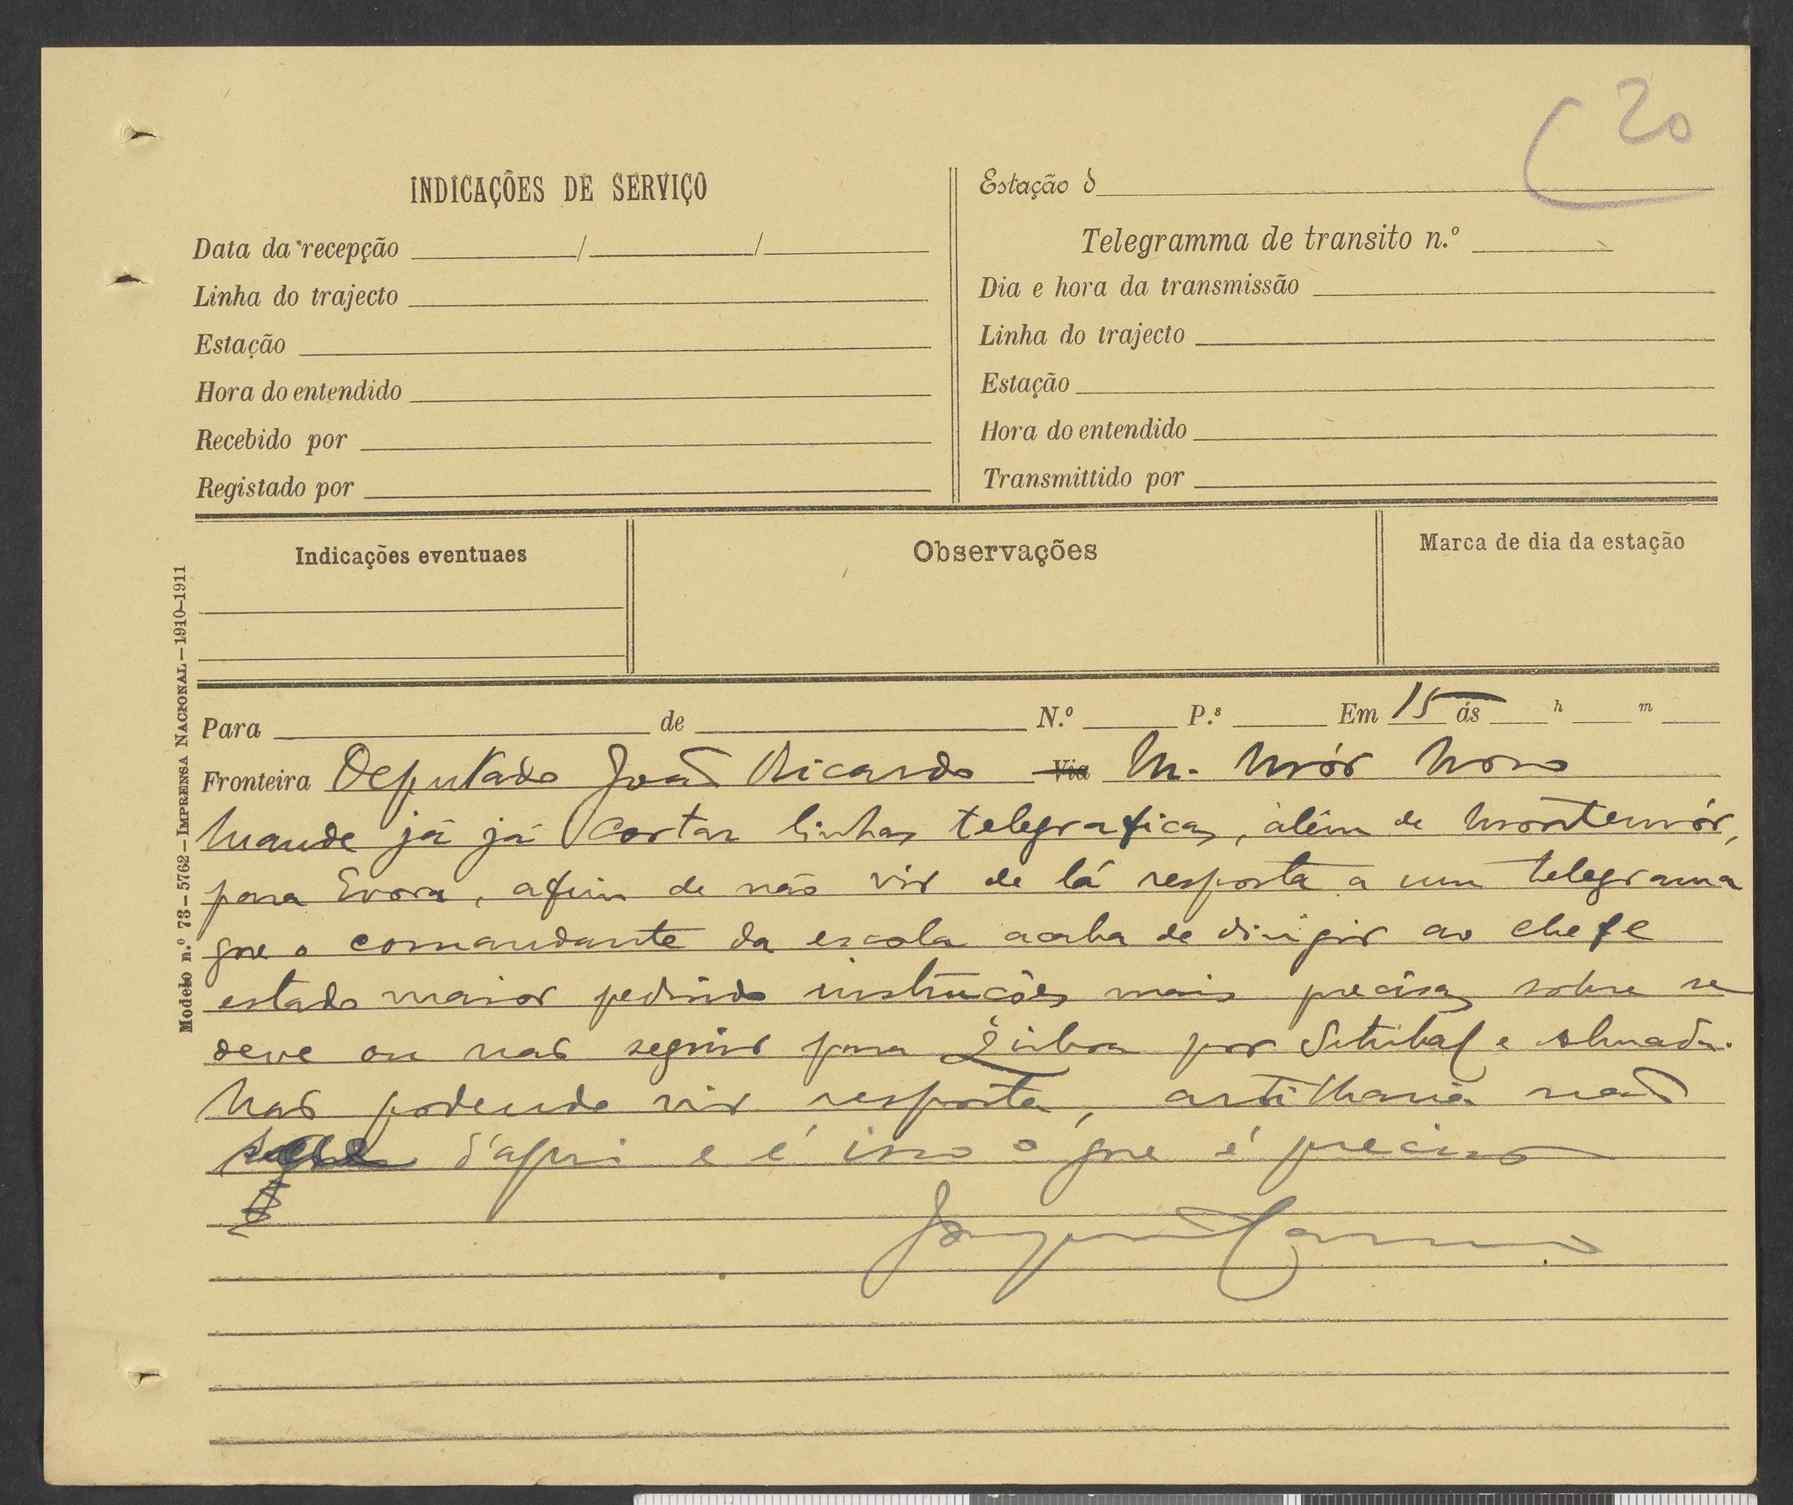 20
INDICAÇÕES DE SERVIÇO
Data da recepção / /
Linha do trajecto
Estação
Hora do entendido
Recebido por
Registado por
Estação d
Telegramma de transito n.º
Dia e hora da transmissão
Linha do trajecto
Estação
Hora do entendido
Transmittido por
Indicações eventuaes
Observações
Marca de dia da estação
Modelo n.º 73—5762—IMPRENSA NACIONAL—1910-1911
Para de N.º P.ˢ Em 15 ás h m
Fronteira Deputado João Ricardo Via M. Mór Novo
Mande já já cortar linhas telegraficas, além de Montemór,
para Evora, afim de não vir de lá resposta a um telegrama
que o comandante da escola acaba de dirigir ao chefe
estado maior pedindo instruções mais precisas sobre se
deve ou não seguir para Lisboa por Setubal e Almada.
Não podendo vir resposta, artilharia não
d'aqui e é isso o que é preciso